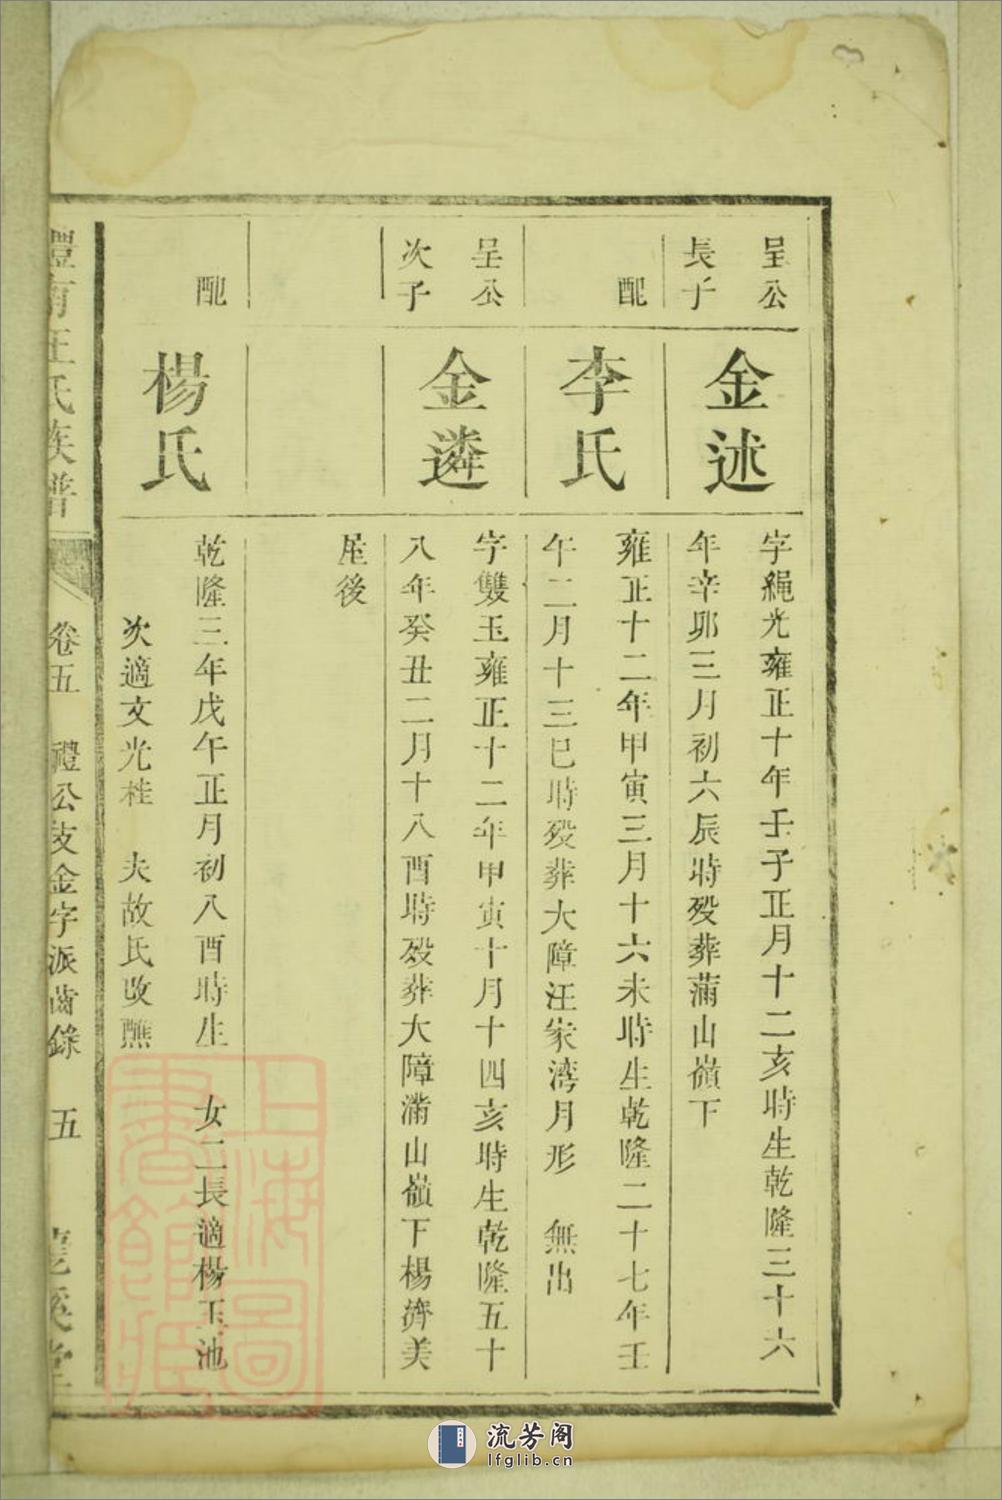 呈公
長子
金述
字繩光雍正十年壬子正月十二亥時生乾隆三十六
年辛卯三月初六辰時殁葬滿山嶺下
配
李氏
雍正十二年甲寅三月十六未時生乾隆二十七年壬
午二月十三巳時殁葬大障汪家湾月形 無出
呈公
次子
金遴
字雙玉雍正十二年甲寅十月十四亥時生乾隆五十
八年癸丑二月十八酉時殁葬大障滿山嶺下楊濟美
屋後
配
楊氏
乾隆三年戊午正月初八酉時生 女二長適楊玉池
次適文光桂 夫故氏改醮
澧南王氏族譜 卷五 禮公支金字派齒錄 五
上海圖書館藏
流芳阁
lfglib.cn